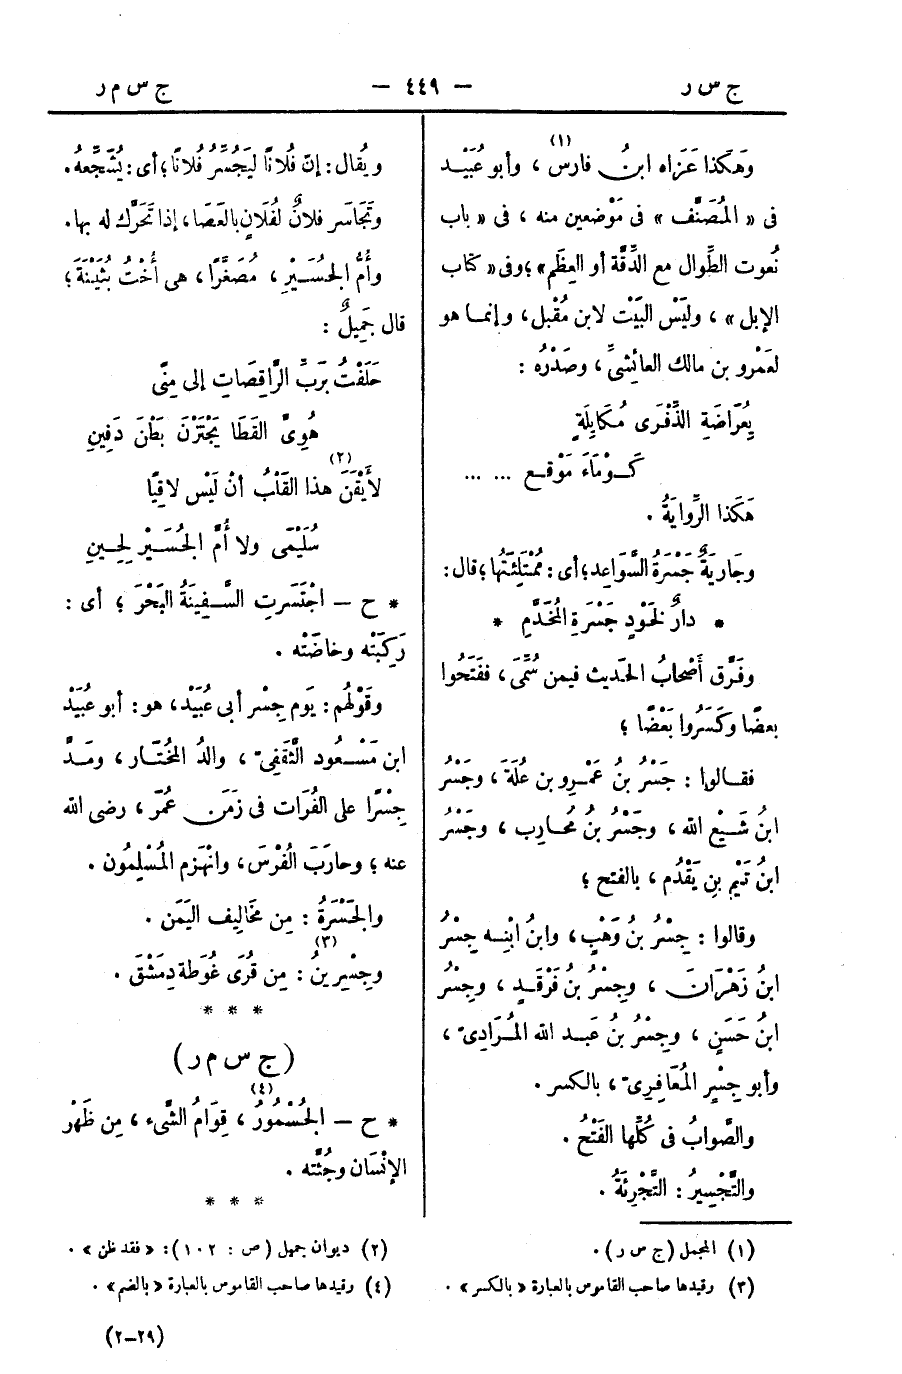 ج س ر — ٤٤٩ — ج س م ر
وَهَكَذا عَزَاه ابنُ فارس (١) ، وأبو عُبَيْد
فى « المُصَنَّف » فى مَوْضعين منه ، فى « باب
نُعوت الطِّوال مع الدِّقَّة أو العِظَم » ؛ وفى « كتاب
الإبل » ، ولَيْس البَيْت لابن مُقْبل ، وإنمـا هو
لعَمْرو بن مالك العائشىِّ ، وصَدْرُه :
بِعُرَاضَةِ الذِّفْرَى مُكَايِلَةٍ
كَـوْمَاءَ مَوْقـع ... ...
هَكَذا الرِّوايَةُ .
وجَاريَةٌ جَسْرَةُ السَّوَاعِد ؛ أى : مُمْتَلِئَتُها ؛ قال :
* دارٌ لخَوْدٍ جَسْرَةِ المُخَدَّمِ *
وفَرَّق أصْحابُ الحَديث فيمن سُمِّىَ ، ففَتَحُوا
بعضًا وكَسَرُوا بَعْضًا ؛
فقـالوا : جَسْرُ بنُ عَمْـرِو بن عُلَةَ ، وجَسْرُ
ابنُ شَـيْع الله ، وجَسْرُ بنُ مُحارِب ، وجَسْرُ
ابنُ تَيْمِ بنِ يَقْدُم ، بالفتح ؛
وقالوا : جِسْرُ بنُ وَهْبٍ ، وابنُ ابْنِـه جِسْرُ
ابنُ زَهْرَانَ ، وجِسْرُ بنُ فَرْقَـدٍ ، وجِسْرُ
ابنُ حَسَنٍ ، وجِسْرُ بنُ عَبـد الله المُرَادِىّ ،
وأبو جِسْرٍ المُعَافِرِىّ ، بالكسر .
والصَّوابُ فى كُلِّها الفَتْحُ .
والتَّجْسِيرُ : التَّجْرِئَةُ .
ويُقال : إنّ فُلانًا ليُجَسِّرُ فُلانًا ؛ أى : يُشَجِّعهُ .
وتَجَاسَر فلانٌ لفُلَانٍ بالعَصَا ، إذا تَحَرَّك له بها .
وأُمُّ الجُسَـيْرِ ، مُصَغَّرًا ، هى أُخْتُ بُثَيْنَةَ ؛
قال جَمِيلٌ :
حَلَفْتُ برَبِّ الرَّاقِصَاتِ إلى مِنًى
هُوِىَّ القَطَا يَجْتَزْنَ بَطْنَ دَفِينِ
لأَيْقَنَ (٢) هذا القَلْبُ أنْ لَيْس لاقِيًا
سُلَيْمَى ولا أُمَّ الجُسَـيْرِ لحِينِ
* ح – اجْتَسَرَتِ السَّـفِينَةُ البَحْرَ ؛ أى :
رَكِبَتْه وخاضَتْه .
وقَوْلُهُم : يَوم جِسْر أبى عُبَيْد ، هو : أبو عبَيْد
ابن مَسْـعُود الثَّقَفِىّ ، والدُ المُخْتَـار ، ومَـدَّ
جِسْرًا على الفُرَات فى زَمَن عُمَرَ ، رضى الله
عنه ؛ وحارَبَ الفُرْسَ ، وانْهَزم المُسْلِمُون .
والجَسْرَةُ : مِن مَخَاليف اليَمَن .
وجِسْرِينُ (٣) : مِن قُرَى غُوطَة دِمَشْقَ .
* * *
( ج س م ر )
* ح – الجُسْمُورُ (٤) ، قِوَامُ الشَّىء ، مِن ظَهْرِ
الإنْسَان وجُثَّته .
* * *
(١) المجمل ( ج س ر ) .
(٢) ديوان جميل ( ص : ١٠٢ ) : « فقد ظن » .
(٣) وقيدها صاحب القاموس بالعبارة « بالكسر » .
(٤) وقيدها صاحب القاموس بالعبارة « بالضم » .
(٢٩–٢)